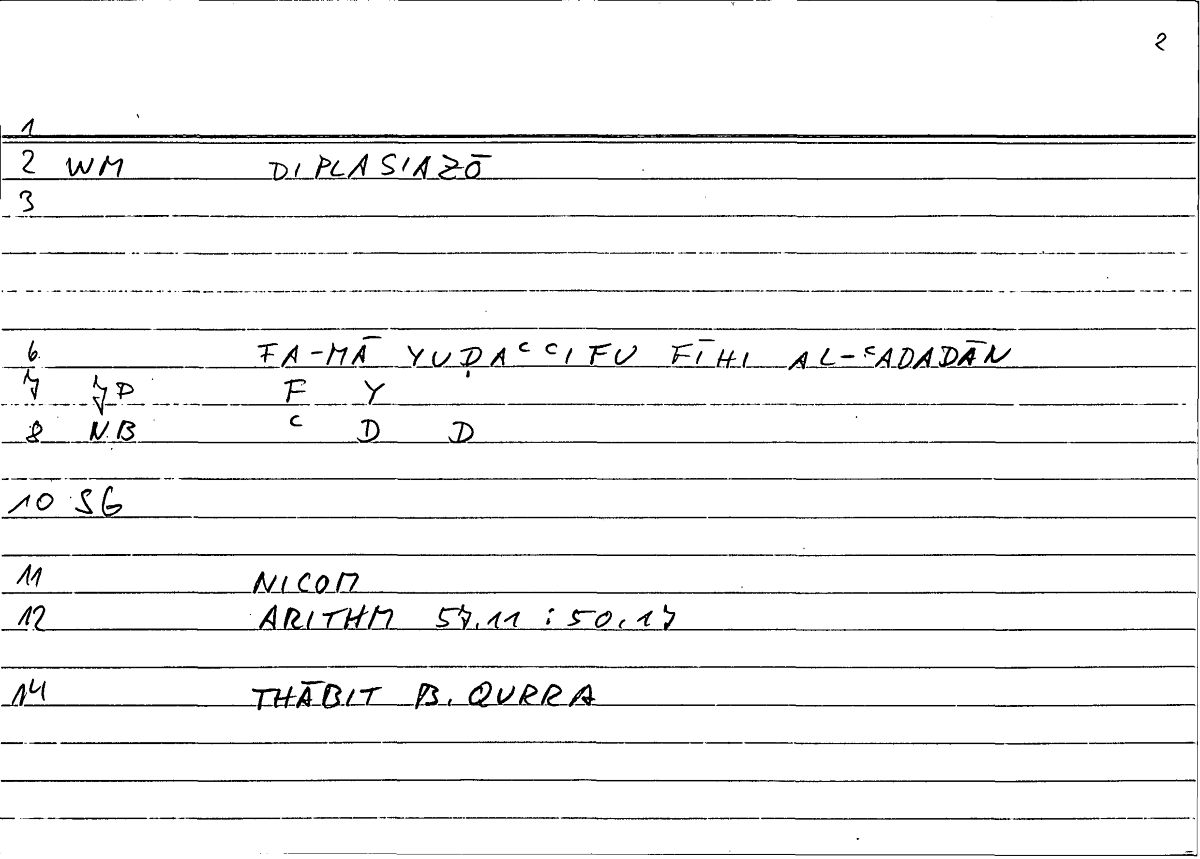 2
1
2 WM DIPLASIAZŌ
3
6 FA-MĀ YUḌAᶜᶜIFU FĪHI AL-ᶜADADĀN
7 7D F Y
8 NB ᶜ D D
10 SG
11 NICOM
12 ARITHM 57.11 : 50.17
14 THĀBIT B. QURRA